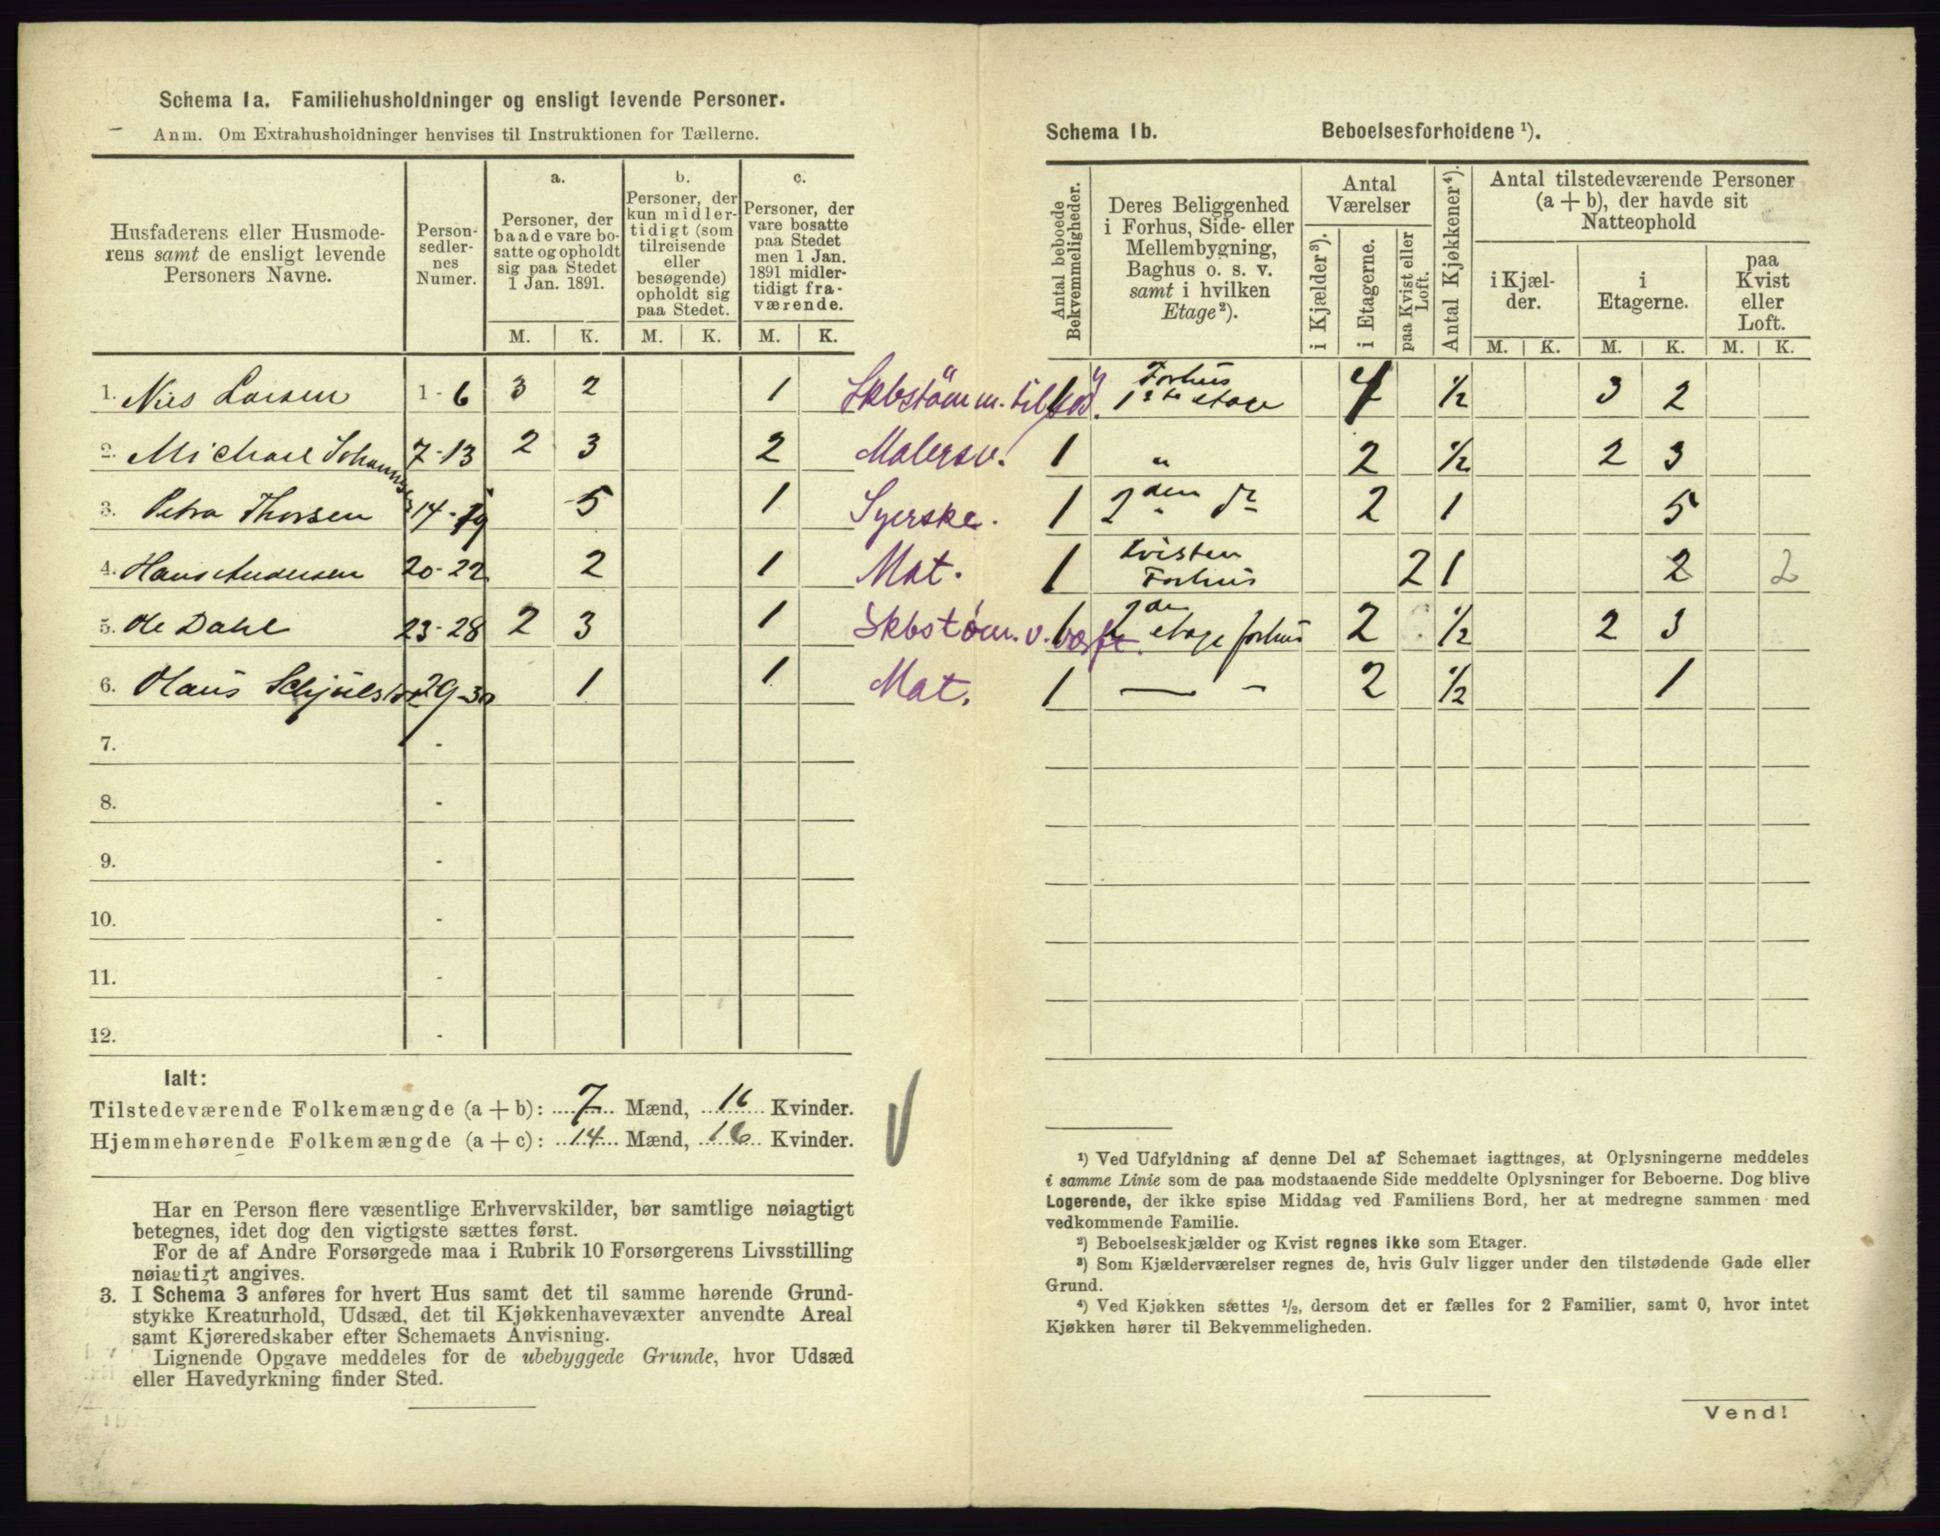 Schema 1a. Familiehusholdninger og ensligt levende Personer.
Anm. Om Extrahusholdninger henvises til Instruktionen for Tællerne.
Husfaderens eller Husmoderens samt de ensligt levende Personers Navne.
Person-sedler-nes Numer.
a. Personer, der baade vare bosatte og opholdt sig paa Stedet 1 Jan. 1891.
b. Personer, der kun midlertidigt (som tilreisende eller besøgende) opholdt sig paa Stedet.
c. Personer, der vare bosatte paa Stedet men 1 Jan. 1891 midlertidigt fraværende.
M. K. M. K. M. K.
1. Nils Larsen 1-6 3 2 1
2. Michael Johannsen 7-13 2 3 2
3. Petra Thorsen 14-19 5 1
4. Hans Andersen 20-22 2 1
5. Ole Dahl 23-28 2 3 1
6. Hans 29-30 1 1
7. -
8. -
9. -
10. -
11. -
12. -
Ialt:
Tilstedeværende Folkemængde (a + b): 7 Mænd, 16 Kvinder.
Hjemmehørende Folkemængde (a + c): 14 Mænd, 16 Kvinder.
Har en Person flere væsentlige Erhvervskilder, bør samtlige nøiagtigt
betegnes, idet dog den vigtigste sættes først.
For de af Andre Forsørgede maa i Rubrik 10 Forsørgerens Livsstilling
nøiagtigt angives.
3. I Schema 3 anføres for hvert Hus samt det til samme hørende Grund-
stykke Kreaturhold, Udsæd, det til Kjøkkenhavevæxter anvendte Areal
samt Kjøreredskaber efter Schemaets Anvisning.
Lignende Opgave meddeles for de ubebyggede Grunde, hvor Udsæd
eller Havedyrkning finder Sted.
Schema 1b. Beboelsesforholdene ¹).
Antal beboede Bekvemmeligheder.
Deres Beliggenhed i Forhus, Side- eller Mellembygning, Baghus o. s. v. samt i hvilken Etage²).
Antal Værelser
i Kjælder³).
i Etagerne.
paa Kvist eller Loft.
Antal Kjøkkener⁴).
Antal tilstedeværende Personer (a + b), der havde sit Natteophold
i Kjælder.
i Etagerne.
paa Kvist eller Loft.
M. K. M. K. M. K.
Skbstømm. 1 Forhus 1ste etage 4 ½ 3 2
Malersv. 1 " 2 ½ 2 3
Syerske. 1 2den " do 2 1 5
Mat. 1 Kvisten Forhus 2 1 2 2
Skbstøm. v. værft. 1 2den etage forhus 2 ½ 2 3
Mat. 1 — - 2 ½ 1
¹) Ved Udfyldning af denne Del af Schemaet iagttages, at Oplysningerne meddeles
i samme Linie som de paa modstaaende Side meddelte Oplysninger for Beboerne. Dog blive
Logerende, der ikke spise Middag ved Familiens Bord, her at medregne sammen med
vedkommende Familie.
²) Beboelseskjælder og Kvist regnes ikke som Etager.
³) Som Kjælderværelser regnes de, hvis Gulv ligger under den tilstødende Gade eller
Grund.
⁴) Ved Kjøkken sættes ½, dersom det er fælles for 2 Familier, samt 0, hvor intet
Kjøkken hører til Bekvemmeligheden.
Vend!